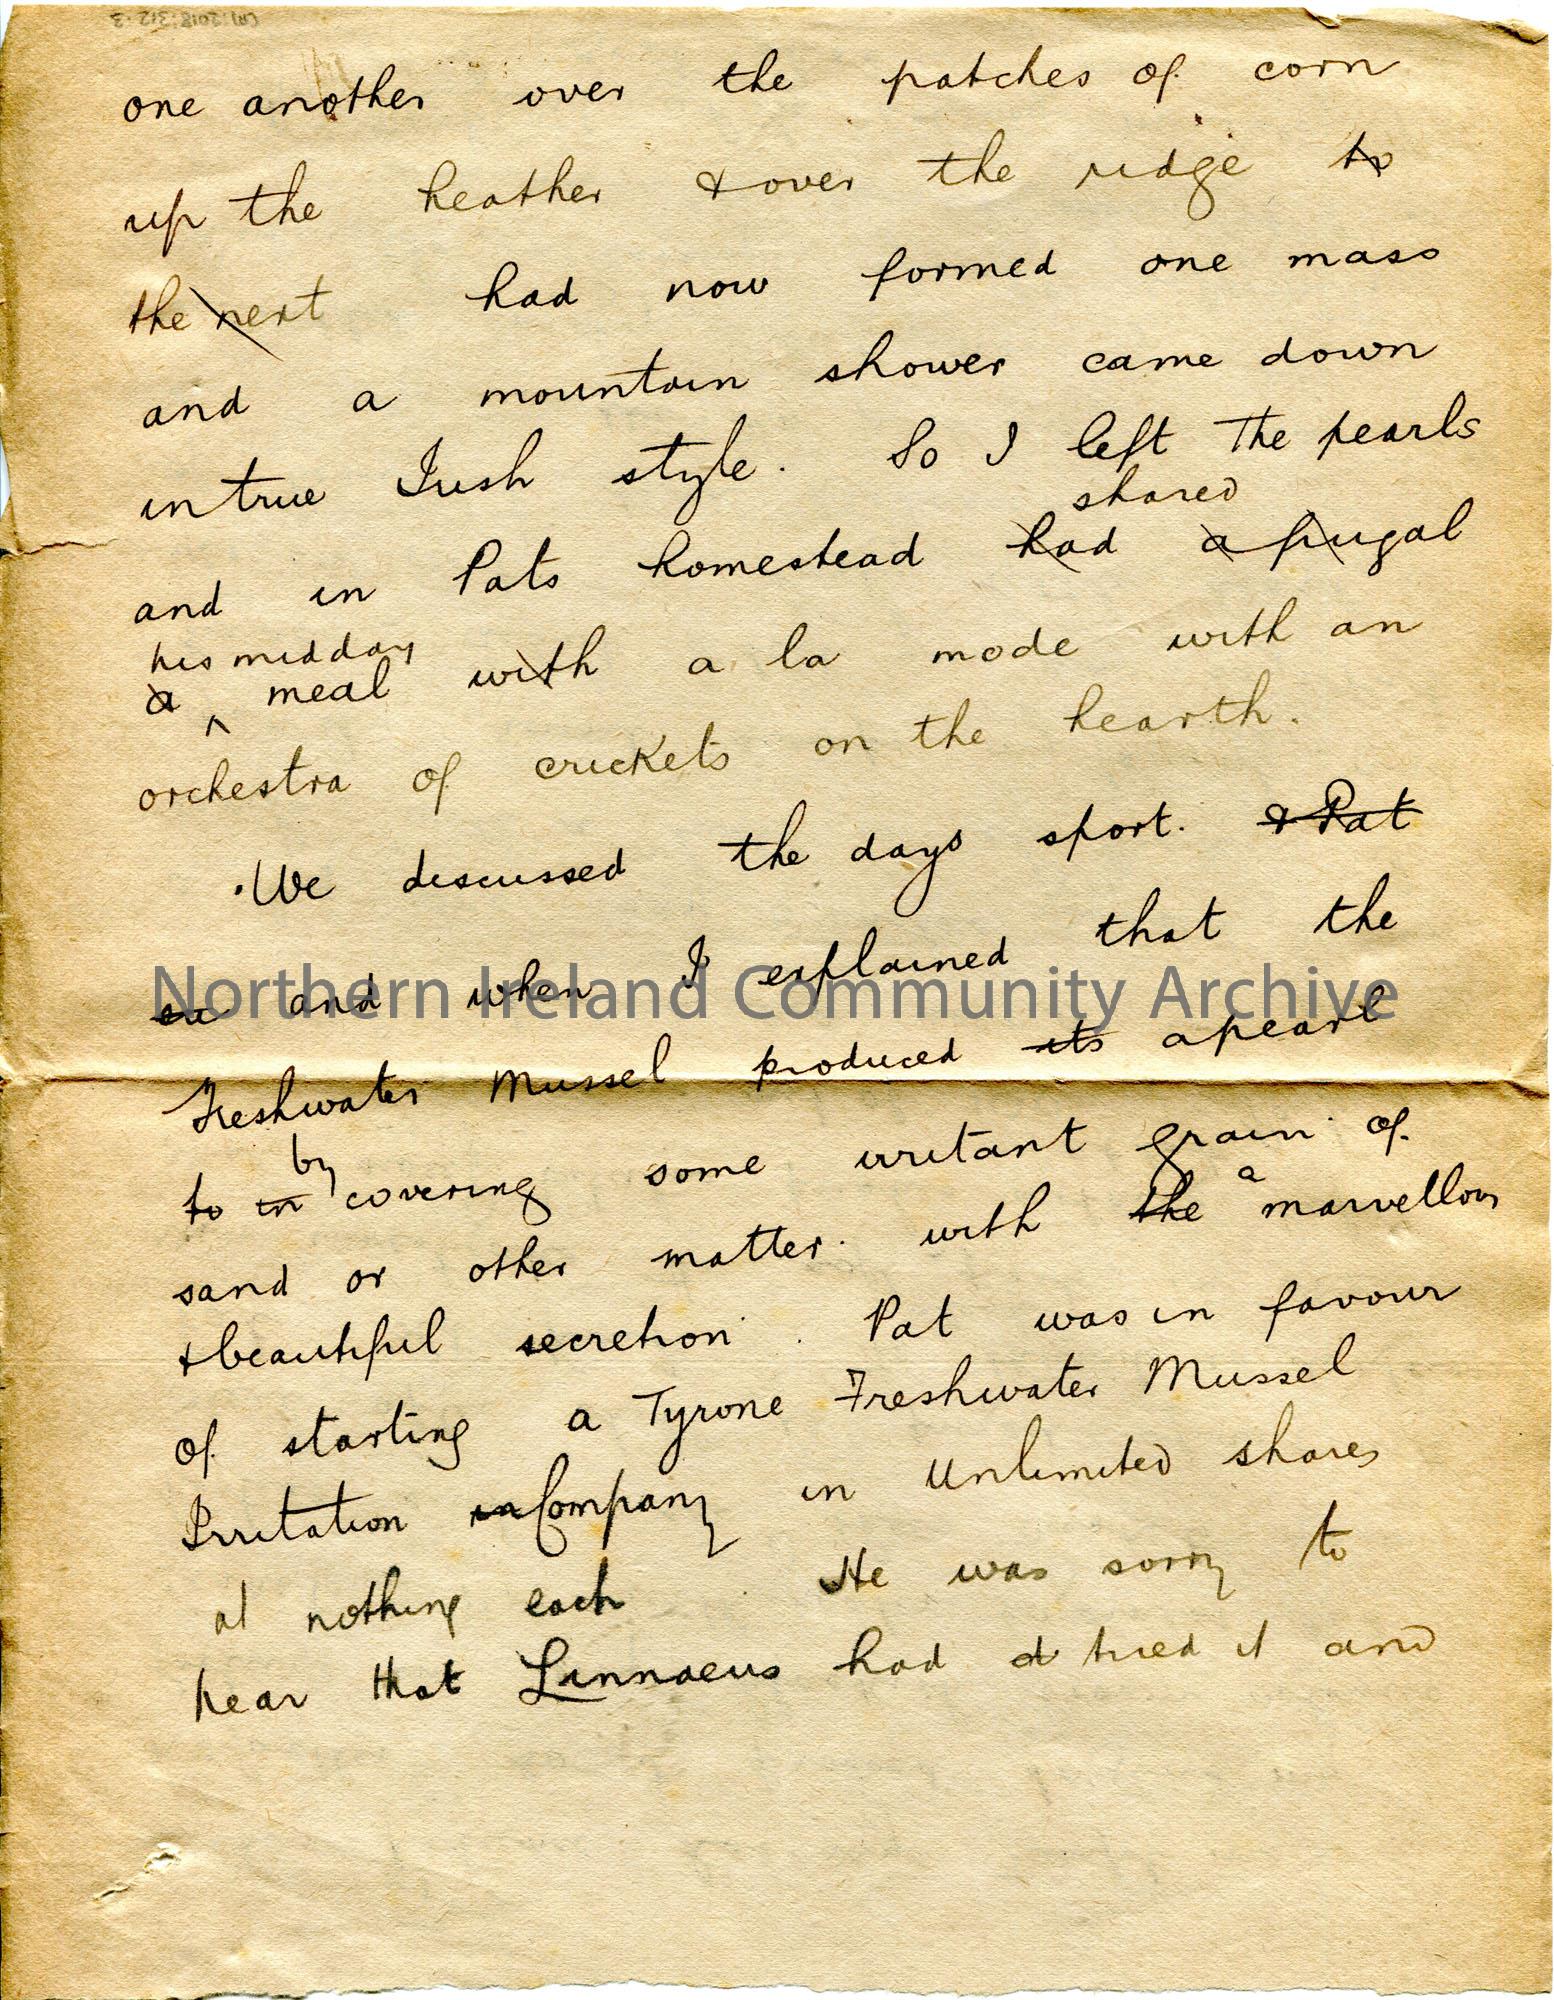 CM:2018:312:3
one another over the patches of corn
up the heather & over the ridge to
the next had now formed one mass
and a mountain shower came down
in true Irish style. So I left the pearls
shared
and in Pats homestead had a frugal
his midday
a ^ meal with a la mode with an
orchestra of crickets on the hearth.
We discussed the days sport. & Pat
and when I explained that the
Northern Ireland Community Archive
Freshwater Mussel produced its a pearl
by
to in covering some irritant grain of
a
sand or other matter. with the marvellous
& beautiful secretion. Pat was in favour
of starting a Tyrone Freshwater Mussel
Irritation in Company in Unlimited shares
at nothing each. He was sorry to
hear that Linnaeus had d tried it and